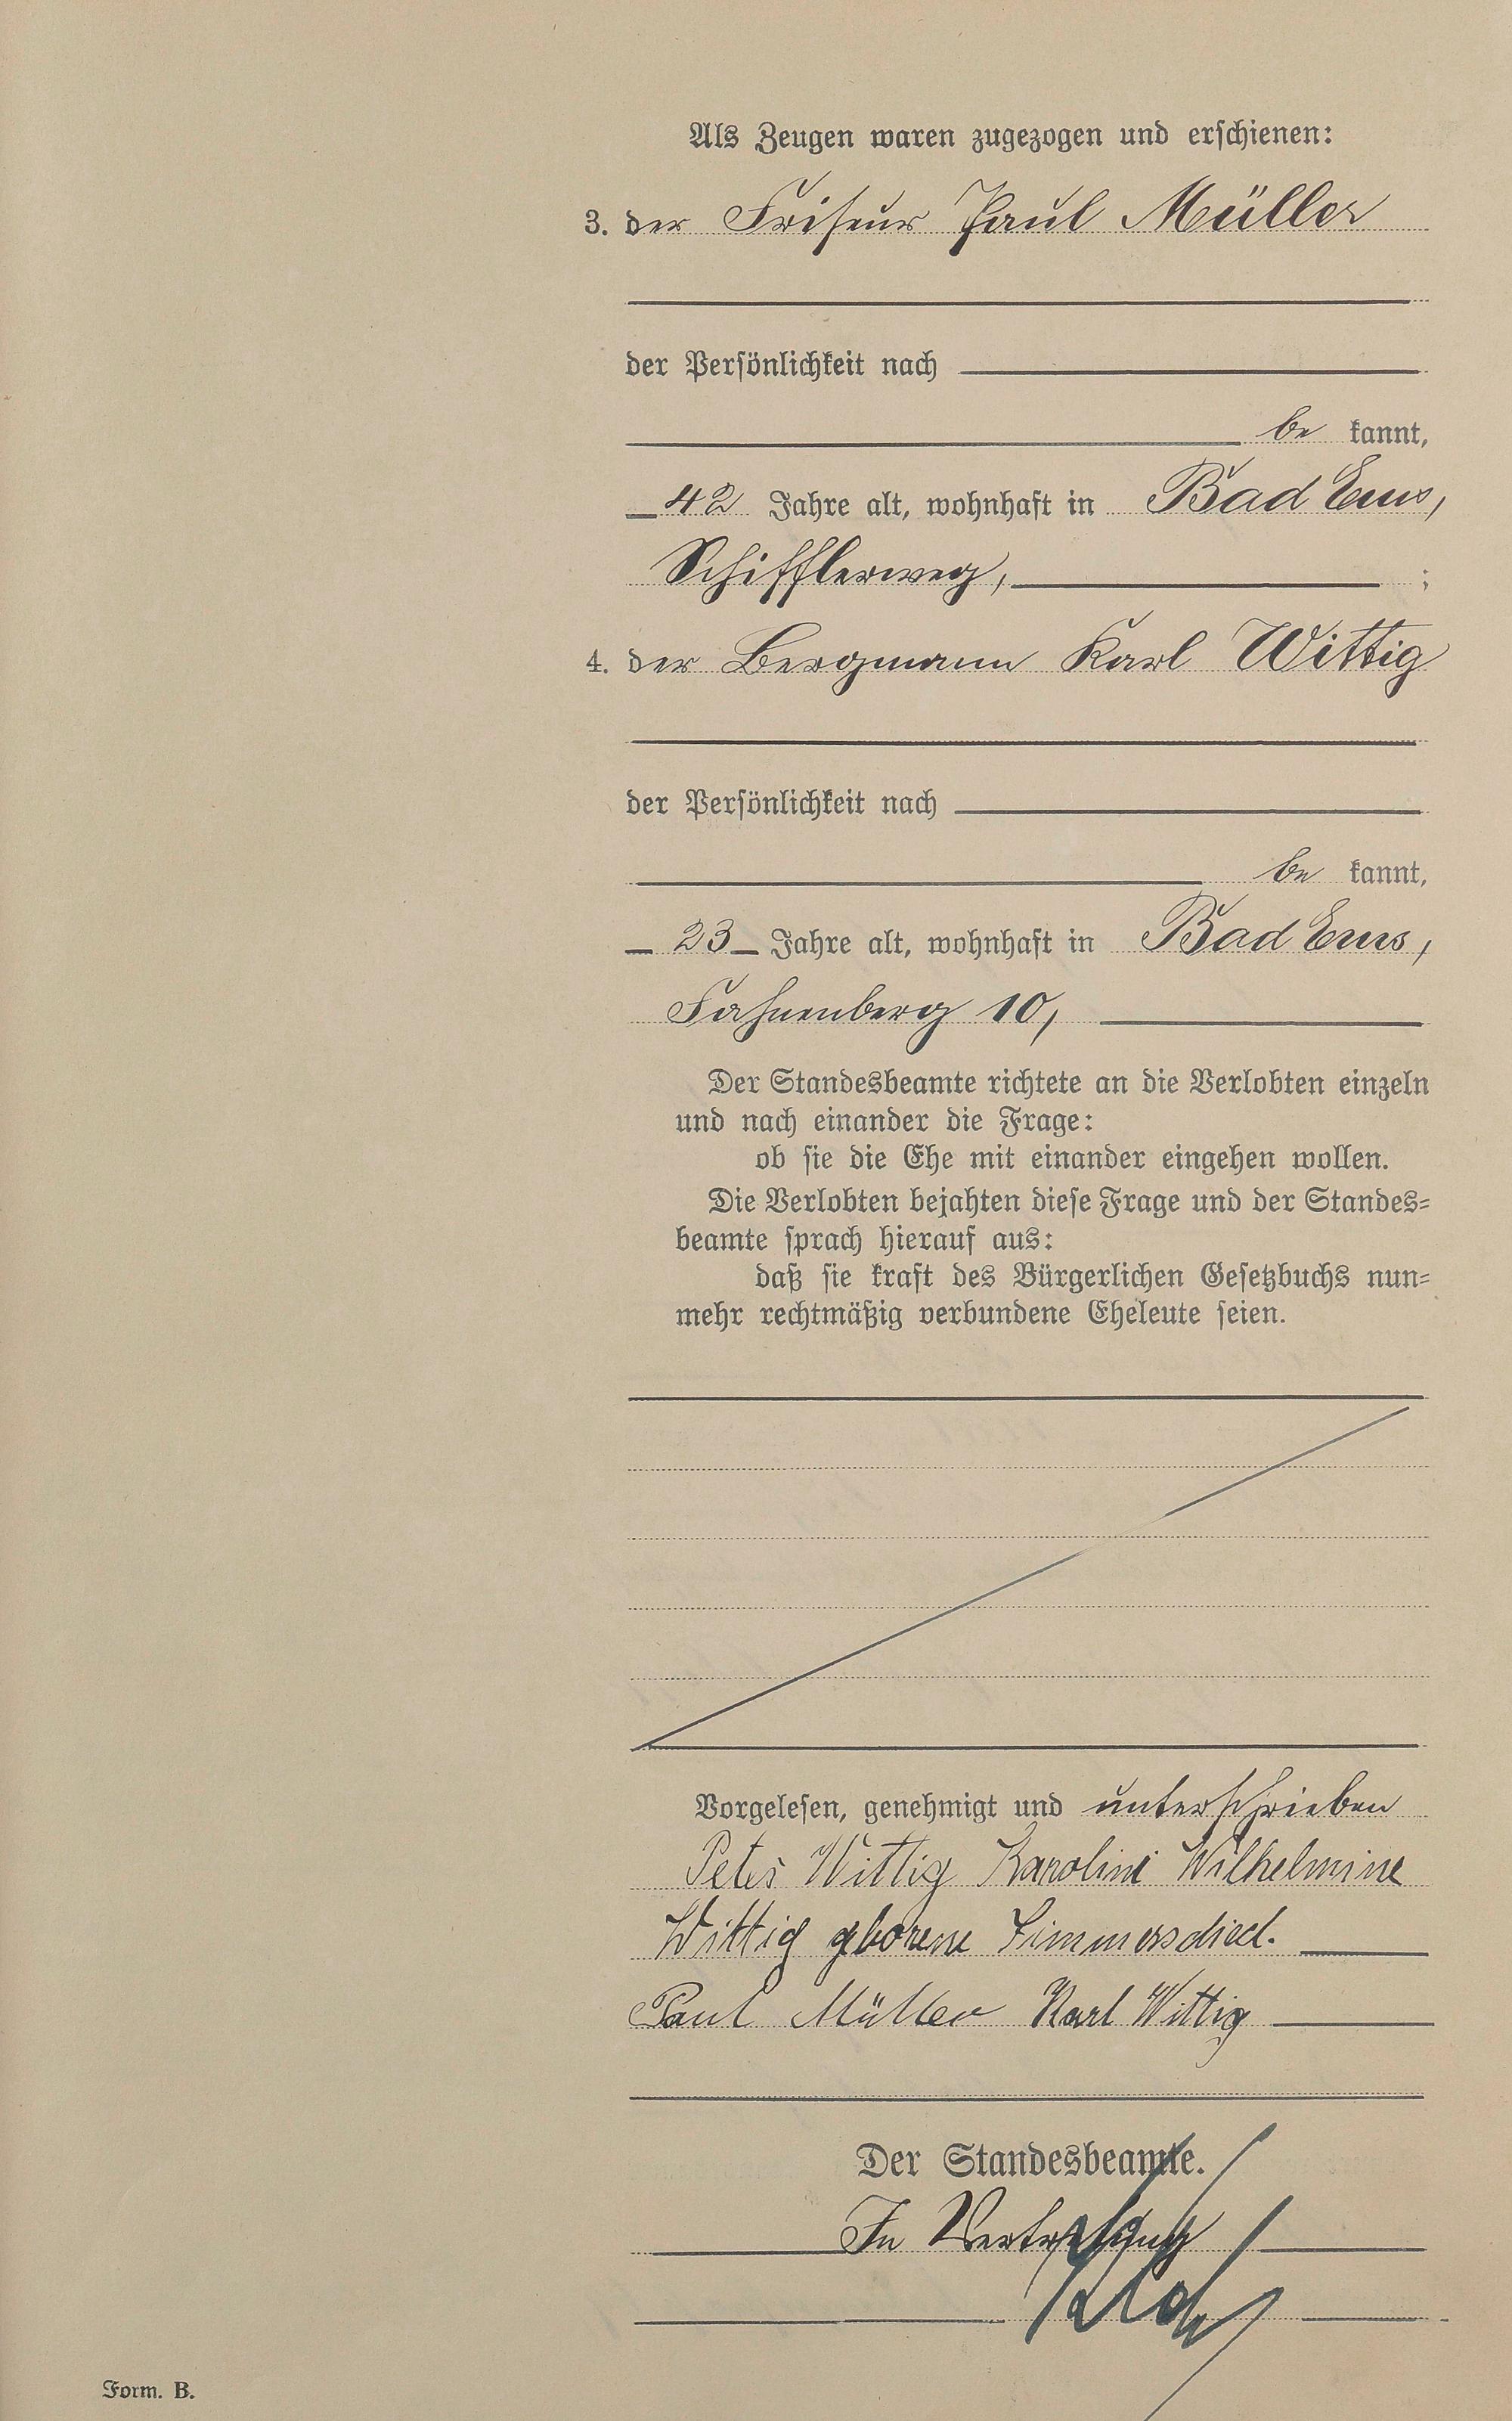 Als Zeugen waren zugezogen und erschienen:
3. der Friseur Paul Müller
der Persönlichkeit nach
be kannt,
42 Jahre alt, wohnhaft in Bad Ems,
Schifflerweg, ;
4. der Bergmann Karl Wittig
der Persönlichkeit nach
be kannt,
23 Jahre alt, wohnhaft in Bad Ems,
Fahnenberg 10,
Der Standesbeamte richtete an die Verlobten einzeln
und nach einander die Frage:
ob sie die Ehe mit einander eingehen wollen.
Die Verlobten bejahten diese Frage und der Standes=
beamte sprach hierauf aus:
daß sie kraft des Bürgerlichen Gesetzbuchs nun=
mehr rechtmäßig verbundene Eheleute seien.
Vorgelesen, genehmigt und unterschrieben
Peter Wittig Karolini Wilhelmine
Wittig geborene
Paul Müller Karl Wittig
Der Standesbeamte.
In Vertretung
Form. B.